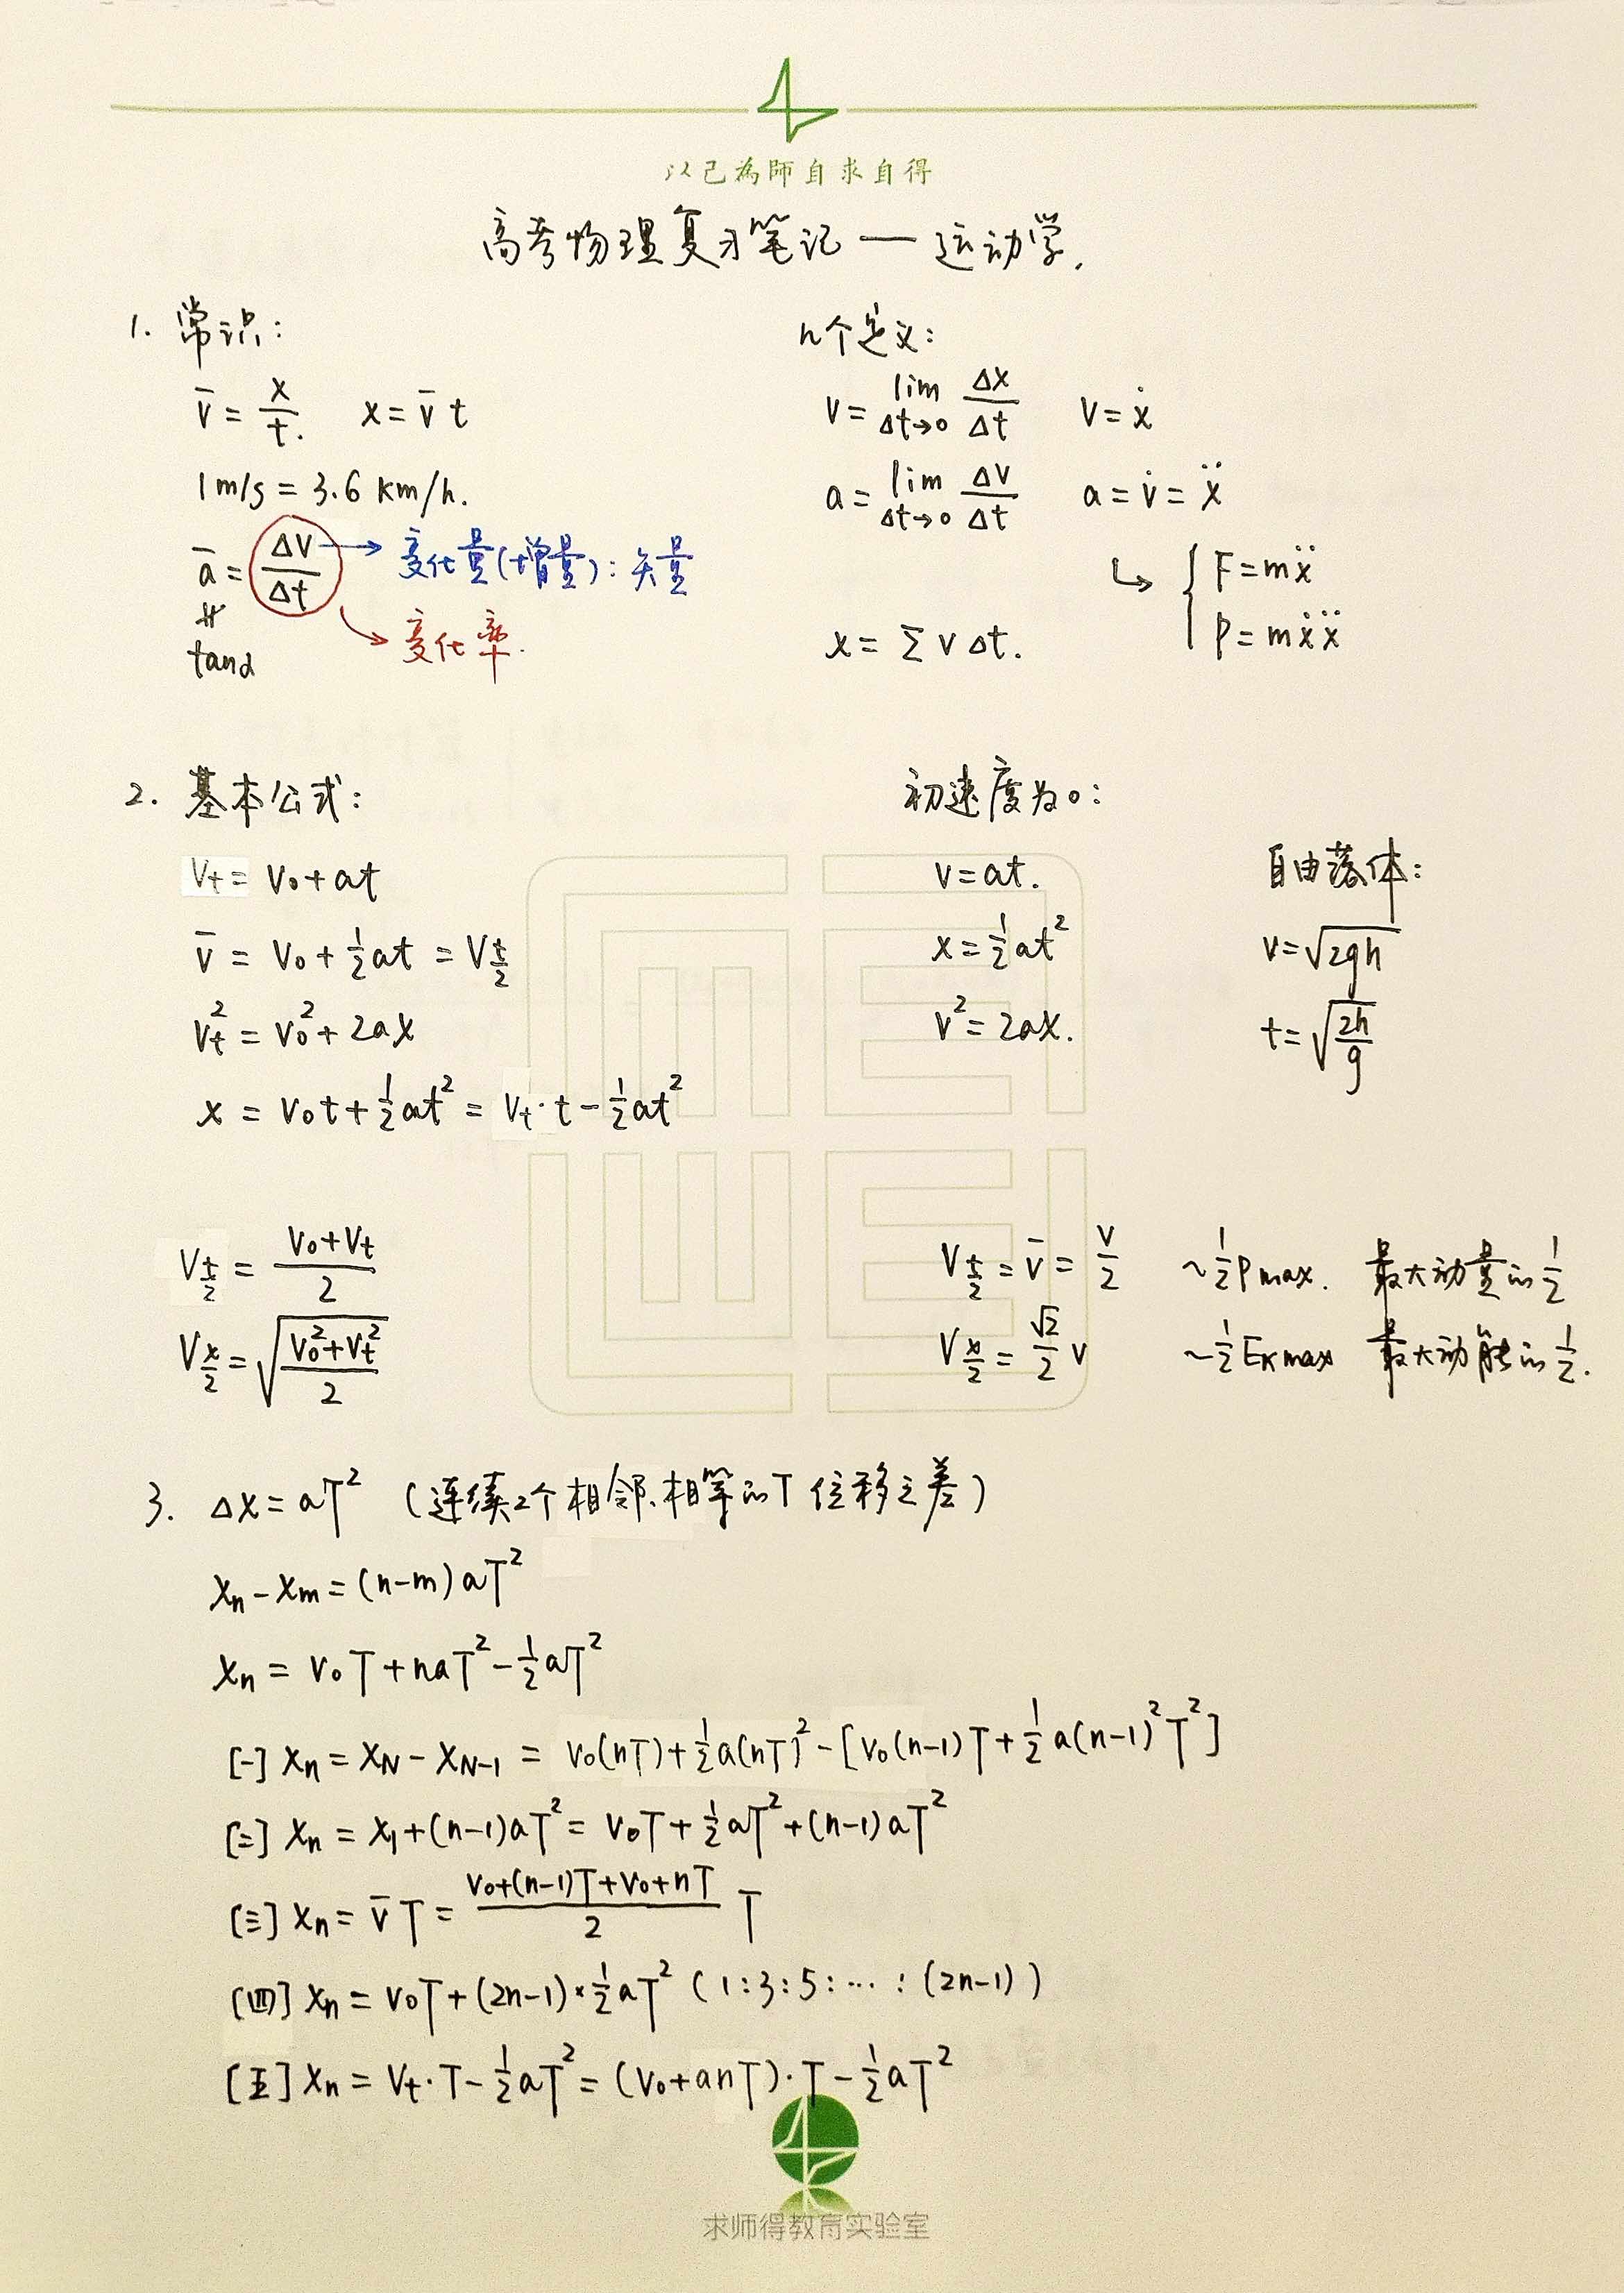 以己為師自求自得
高考物理复习笔记 — 运动学.
1. 常识:
v̄ = x/t. x = v̄ t
1m/s = 3.6 km/h.
ā = Δv/Δt → 变化量(增量): 矢量
∦
tanα
→ 变化率.
n个定义:
v = lim Δt→0 Δx/Δt v = ẋ
a = lim Δt→0 Δv/Δt a = v̇ = ẍ
↳ { F = mẍ
P = mẋẍ
x = Σ v Δt.
2. 基本公式:
Vt = V₀ + at
v̄ = V₀ + ½at = V_{t/2}
Vt² = V₀² + 2ax
x = V₀t + ½at² = Vt·t − ½at²
初速度为0:
v = at.
x = ½at²
v² = 2ax.
自由落体:
v = √(2gh)
t = √(2h/g)
V_{t/2} = (V₀+Vt)/2
V_{x/2} = √((V₀²+Vt²)/2)
V_{t/2} = v̄ = v/2 ~½Pmax. 最大动量的½
V_{x/2} = (√2/2)v ~½Ekmax 最大动能的½.
3. Δx = aT² (连续2个相邻、相等的T位移之差)
xn − xm = (n−m)aT²
xn = V₀T + naT² − ½aT²
[一] xn = xN − xN−1 = V₀(nT) + ½a(nT)² − [V₀(n−1)T + ½a(n−1)²T²]
[二] xn = x₁ + (n−1)aT² = V₀T + ½aT² + (n−1)aT²
[三] xn = v̄T = (V₀+(n−1)T+V₀+nT)/2 T
[四] xn = V₀T + (2n−1)×½aT² (1:3:5:…:(2n−1))
[五] xn = Vt·T − ½aT² = (V₀+anT)·T − ½aT²
求师得教育实验室